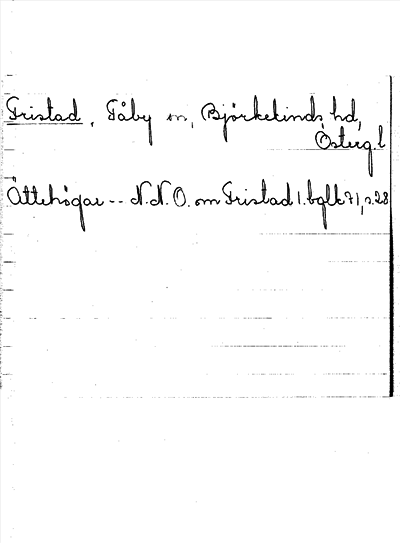 Fristad, Tåby sn, Björkekinds hd,
Österg. l
Ättehögar -- N.N.O. om Fristad l. bglb 71, s. 28